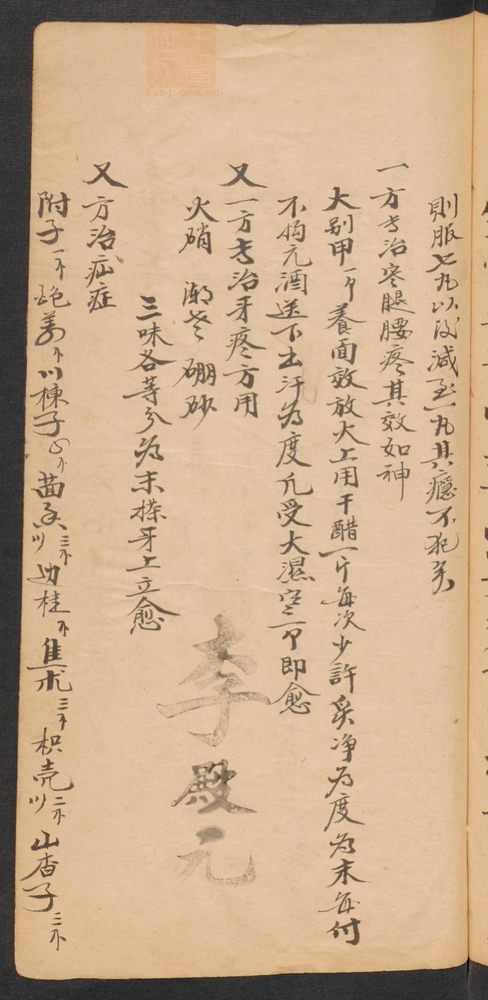 則服七九以後減至一丸其癮不犯矣
一方專治寒腿腰疼其效如神
大别甲一个養面效放火上用干醋一斤每次少許炙净為度為末每付
不拘元酒送下出汗為度凡受大濕空一个即愈
又一方專治牙疼方用
火硝 潮老 硼砂
三味各等分為末搽牙上立愈
又方治疝症
附子一个 炮姜 川棟子 茴香 三 肉桂 焦朮三 枳壳二 山查子三
李殿元